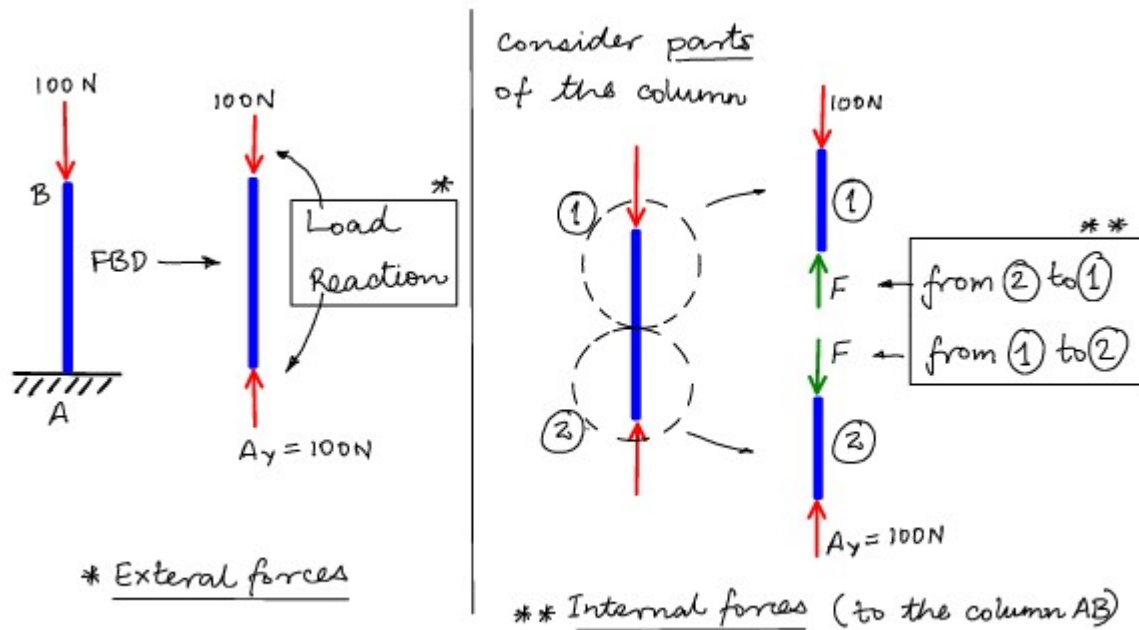 100 N
B
FBD
A
100N
*
Load
Reaction
Ay = 100N
* Exteral forces
Consider parts
of the column
1
2
100N
1
F
* *
from 2 to 1
F
from 1 to 2
2
Ay = 100N
** Internal forces (to the column AB)